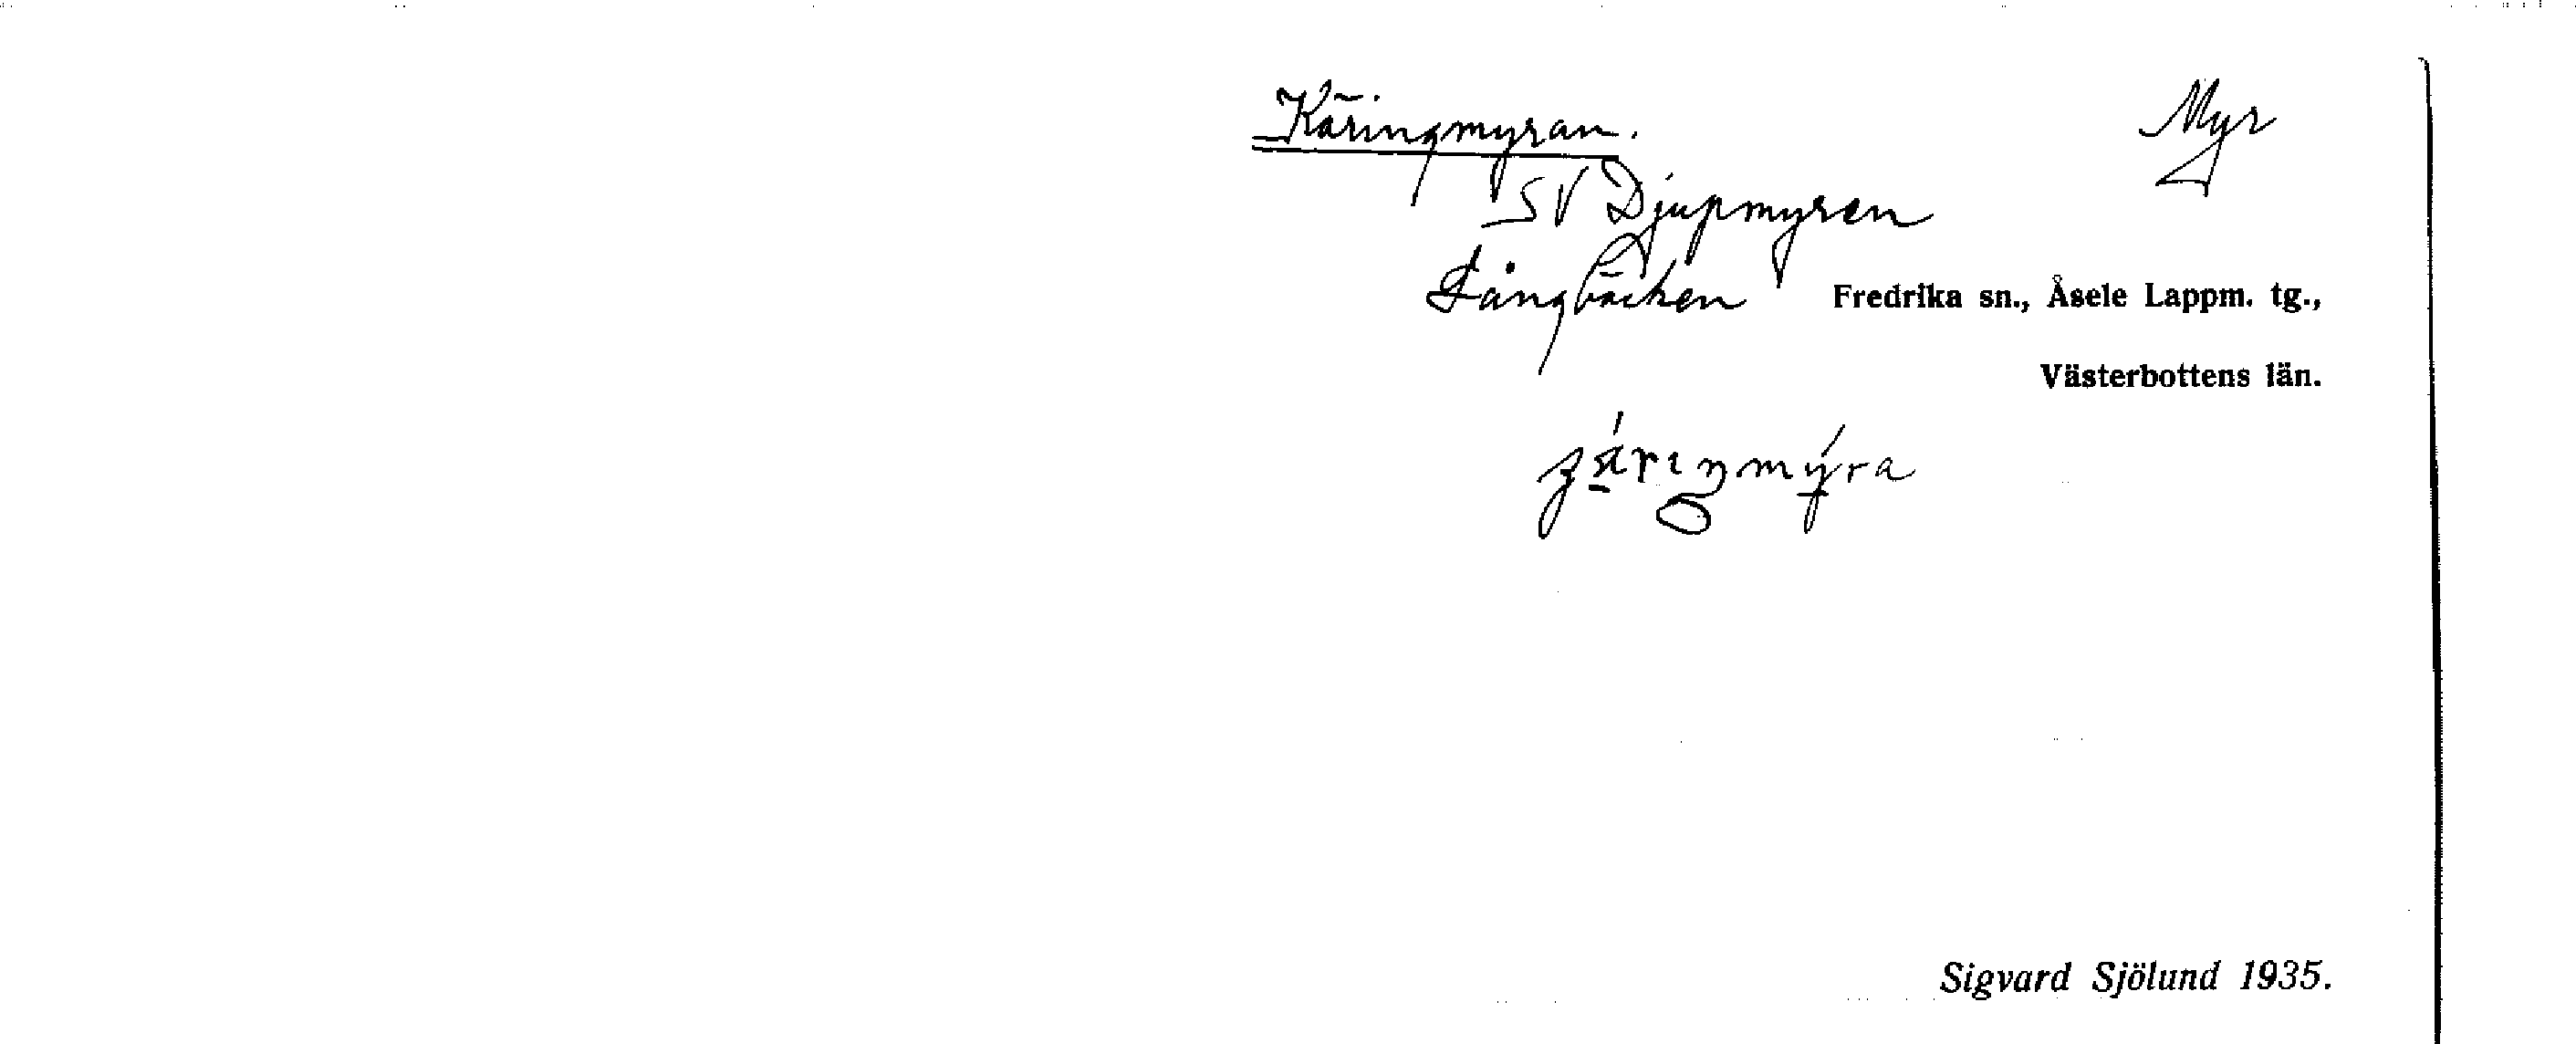 Käringmyran. Myr
SV Djupmyren
Långbäcken Fredrika sn., Åsele Lappm. tg.,
Västerbottens län.
Sigvard Sjölund 1935.